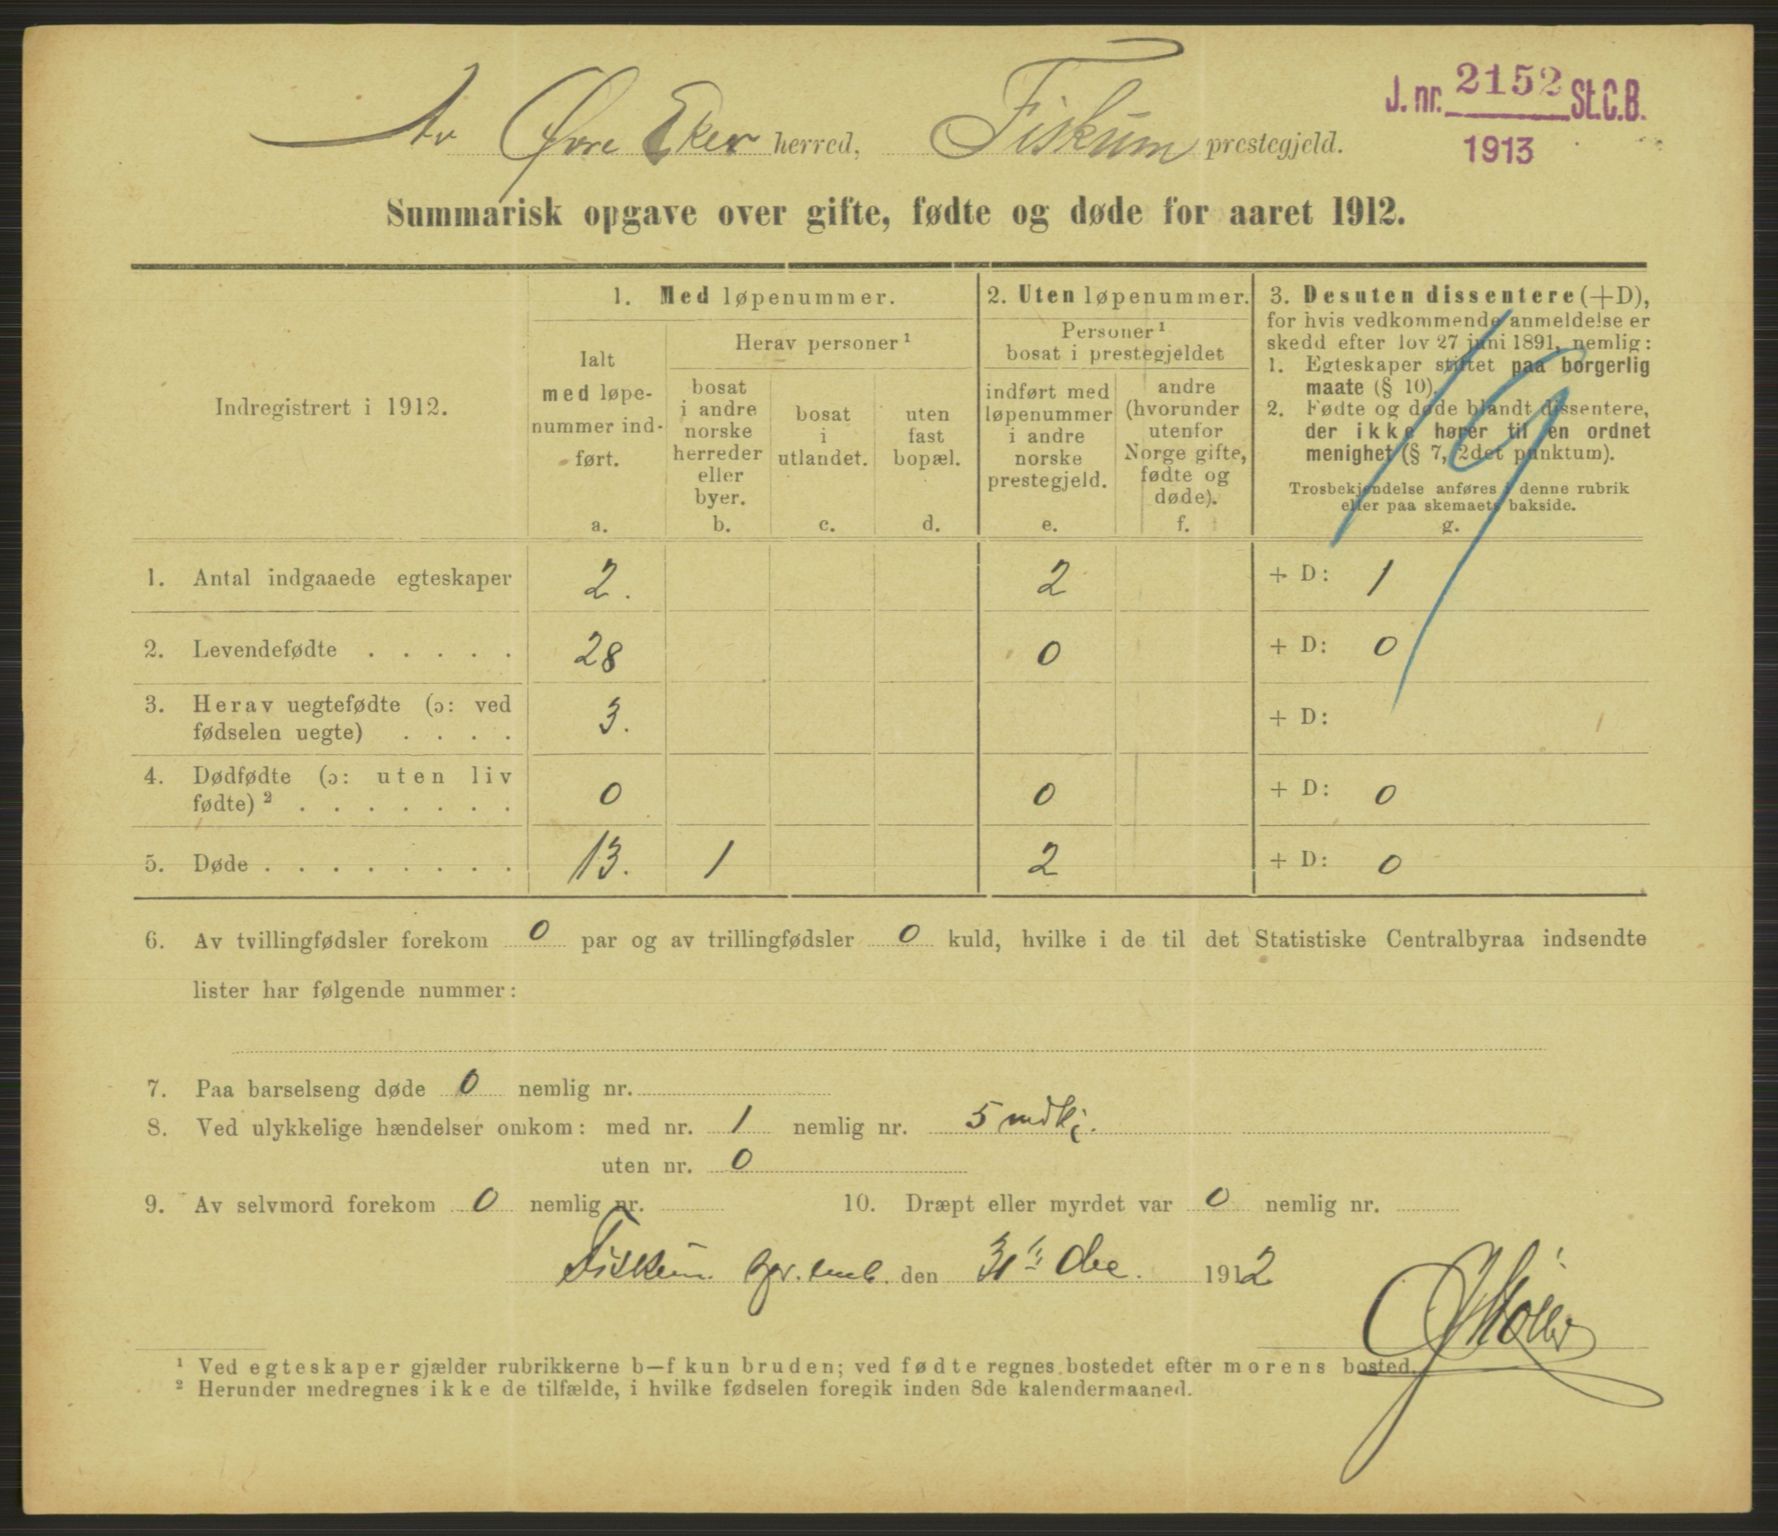 J. nr. 2152 St.C.B.
1913
Av Øvre Eker herred, Fiskum prestegjeld.
Summarisk opgave over gifte, fødte og døde for aaret 1912.
Indregistrert i 1912.
1. Med løpenummer.
Ialt
med løpe-
nummer ind-
ført.
a.
Herav personer ¹
bosat
i andre
norske
herreder
eller
byer.
b.
bosat
i
utlandet.
c.
uten
fast
bopæl.
d.
2. Uten løpenummer.
Personer ¹
bosat i prestegjeldet
indført med
løpenummer
i andre
norske
prestegjeld.
e.
andre
(hvorunder
utenfor
Norge gifte,
fødte og
døde).
f.
3. Desuten dissentere (+D),
for hvis vedkommende anmeldelse er
skedd efter lov 27 juni 1891, nemlig:
1. Egteskaper stiftet paa borgerlig
maate (§ 10),
2. Fødte og døde blandt dissentere,
der ikke hører til en ordnet
menighet (§ 7, 2det punktum).
Trosbekjendelse anføres i denne rubrik
eller paa skemaets bakside.
g.
19
1. Antal indgaaede egteskaper 2. 2 + D: 1
2. Levendefødte . . . . . 28 0 + D: 0
3. Herav uegtefødte (ɔ: ved
fødselen uegte) . . . . 3. + D:
4. Dødfødte (ɔ: uten liv
fødte) ² . . . . . . . 0 0 + D: 0
5. Døde . . . . . . . . 13. 1 2 + D: 0
6. Av tvillingfødsler forekom 0 par og av trillingfødsler 0 kuld, hvilke i de til det Statistiske Centralbyraa indsendte
lister har følgende nummer:
7. Paa barselseng døde 0 nemlig nr.
8. Ved ulykkelige hændelser omkom: med nr. 1 nemlig nr. 5 mdkj.
uten nr. 0
9. Av selvmord forekom 0 nemlig nr. 10. Dræpt eller myrdet var 0 nemlig nr.
Fiskum den 31te dec. 1912
¹ Ved egteskaper gjælder rubrikkerne b—f kun bruden; ved fødte regnes bostedet efter morens bosted.
² Herunder medregnes ikke de tilfælde, i hvilke fødselen foregik inden 8de kalendermaaned.